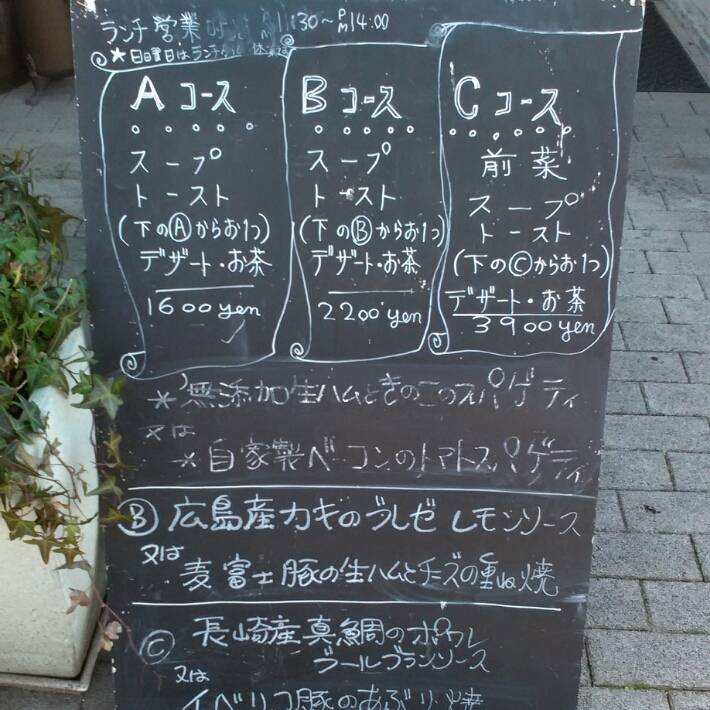 ランチ営業時間 AM 11:30〜PM 14:00
★日曜日はランチ
Aコース
スープ
トースト
(下のⒶからお1つ)
デザート・お茶
1600yen
Bコース
スープ
トースト
(下のⒷからお1つ)
デザート・お茶
2200yen
Cコース
前菜
スープ
トースト
(下のⒸからお1つ)
デザート・お茶
3900yen
*無添加生ハムときのこのスパゲティ
又は
*自家製ベーコンのトマトスパゲティ
Ⓑ広島産カキのブレゼ レモンソース
又は
麦富士豚の生ハムとチーズの重ね焼
Ⓒ長崎産真鯛のポワレ
ブールブランソース
又は
イベリコ豚のあぶり焼